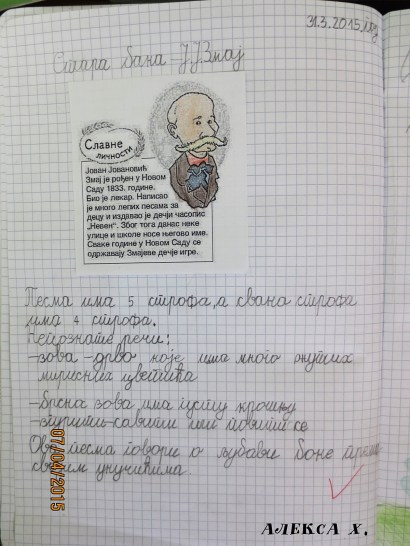 31.3.2015.
Стара бака - Ј.Ј.Змај
Славне
личности
Јован Јовановић
Змај је рођен у Новом
Саду 1833. године.
Био је лекар. Написао
је много лепих песама за
децу и издавао је дечји часопис
„Невен“. Због тога данас неке
улице и школе носе његово име.
Сваке године у Новом Саду се
одржавају Змајеве дечје игре.
Песма има 5 строфа, а свака строфа
има 4 строфа.
Непознате речи:
-зова -дрво које има много жутих
мирисних цветића
-бусна зова има густу крошњу
-савити или
Ова песма говори о љубави баке према
својим унучићима.
07/04/2015
АЛЕКСА Х.